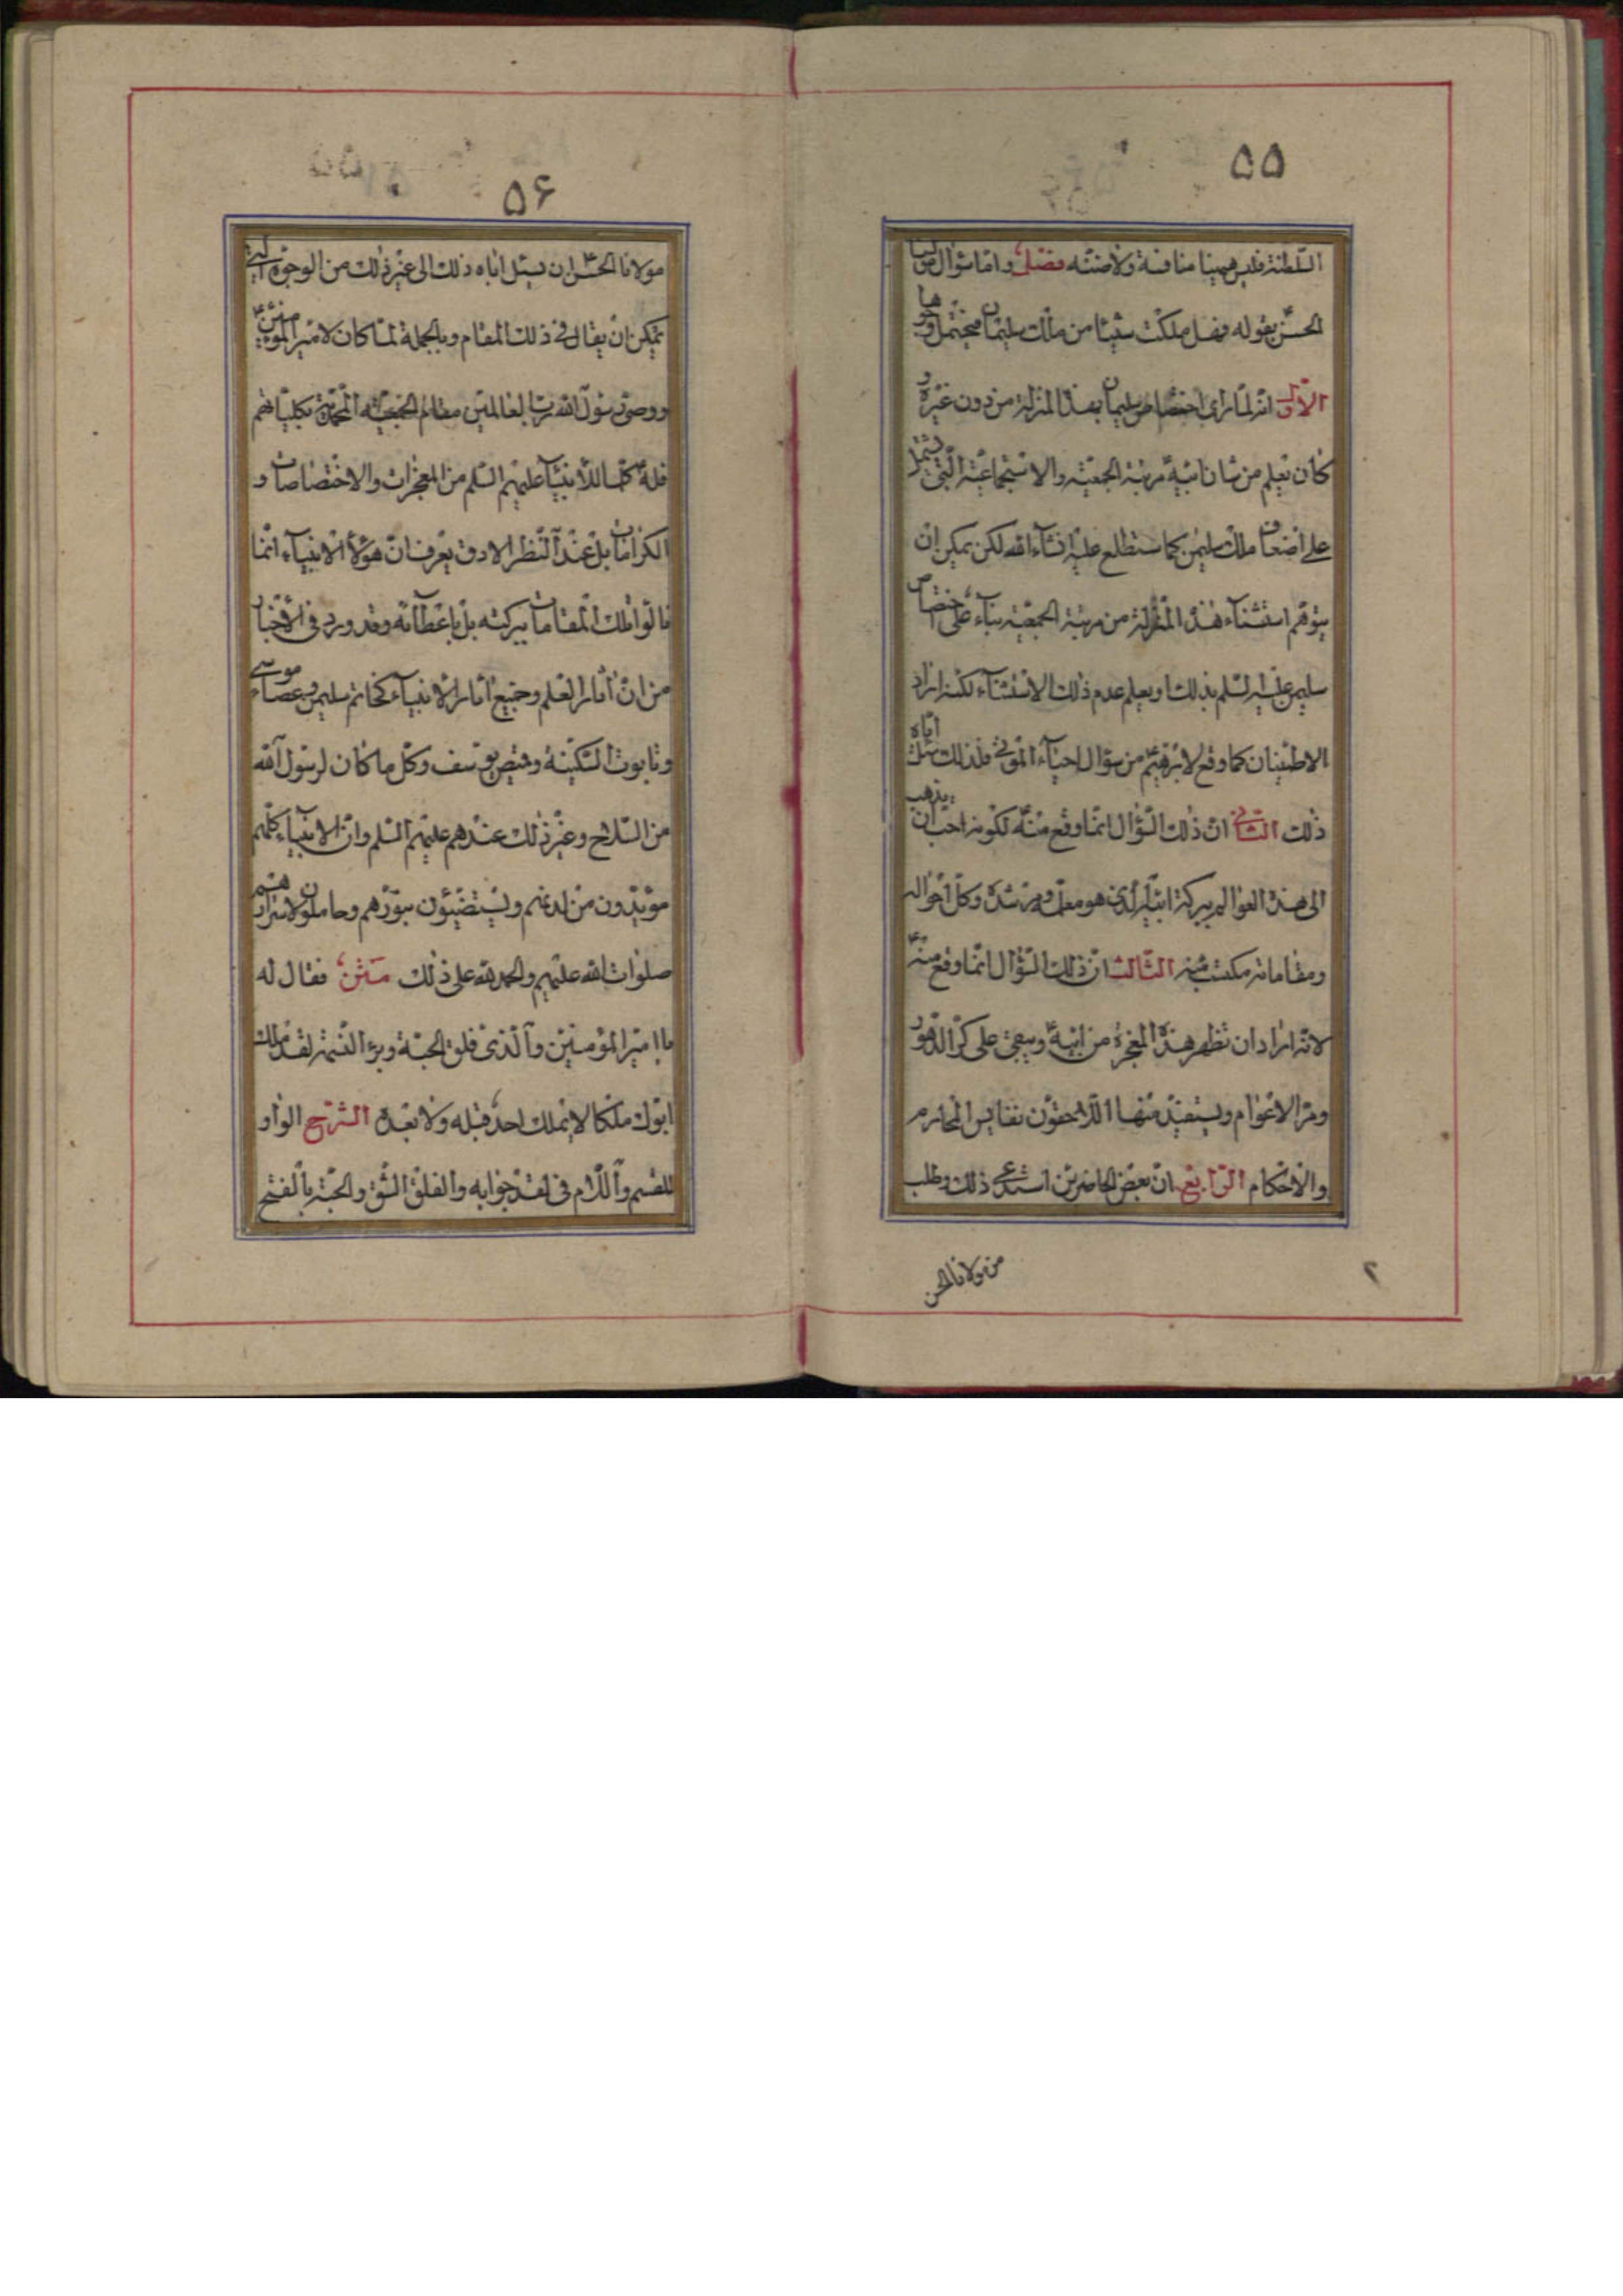 ۵۵
السّلطنة فليس فيهنا منافسة ولا ضنّته فصل و امّا سؤال مولانا
الحسن بقوله فهل ملكت شيئا من ملك سليمان فيحتمل وجوها
الاوّل انّه لمّا راى اختصاص سليمان بهذه المنزلة من دون غيره و
كان يعلم من شان ابيه مرتبة الجمعيّة والاستجماعيّة الّتى تشتمل
على اضعاف ملك سليمن كما ستطلع عليه انشاء الله لكن يمكن ان
يتوهّم استثناء هذه المنزلة من مرتبة الجمعيّة بناء على اختصاص
سليمن عليه السلم بذلك او يعلم عدم ذلك الاستثناء لكنه اراد
الاطمينان كما وقع لابرهيم من سؤال احياء الموتى فلذلك سئل اباه
ذلك الثانى ان ذلك السّؤال انمّا وقع منه لكونه احب ان يذهب
الى هذه العوالم ببركة ابيه الّذى هو معلمه ومرشده وكلّ احواله
ومقاماته مكتسب منه الثّالث انّ ذلك السّؤال انمّا وقع منه
لانّه اراد ان تظهر هذه المعجزة من ابيه ويبقى على كرّ الدّهور
ومرّ الاعوام ويستفيد منها اللّاحقون نفايس المحارم
والاحكام الرّابع انّ بعض الحاضرين استدعى ذلك وطلب
من مولانا الحسن
۲
۵۶
مولانا الحسن ان يسئل اباه ذلك الى غير ذلك من الوجوه الّتى
يمكن ان يقال فى ذلك المقام وبالجملة لمّا كان لامير المؤمنين
ووصىّ رسول الله ربّ العالمين مقام الجمعيّة المحمّديّة بكلّياتهم
فله كلّما للأنبيآء عليهم السّلم من المعجزات والاختصاصات و
الكرامات بل عند النّظر الادق يعرف انّ هؤلاء الانبيآء انمّا
نالوا تلك المقامات ببركته بل باعطائه وقد ورد فى الاخبار
من انّ آثار العلم وجميع آثار الانبيآء كخاتم سليمن وعصاء موسى
وتابوت السّكينة وقميص يوسف وكلّ ما كان لرسول الله
من السّلاح وغير ذلك عندهم عليهم السّلم وانّ الانبيآء كلّهم
مؤيّدون من لدنهم ويستضيئون بنورهم وحاملون لاسرارهم
صلوات الله عليهم والحمد لله على ذلك متن فقال له
يا امير المؤمنين والّذى فلق الحبّة وبرء النّسمة لقد ملك
ابوك ملكا لا يملك احد قبله ولا بعده الشّرح الواو
للقسم واللّام فى لقد جوابه والفلق الشّق والحبّة بالفتح